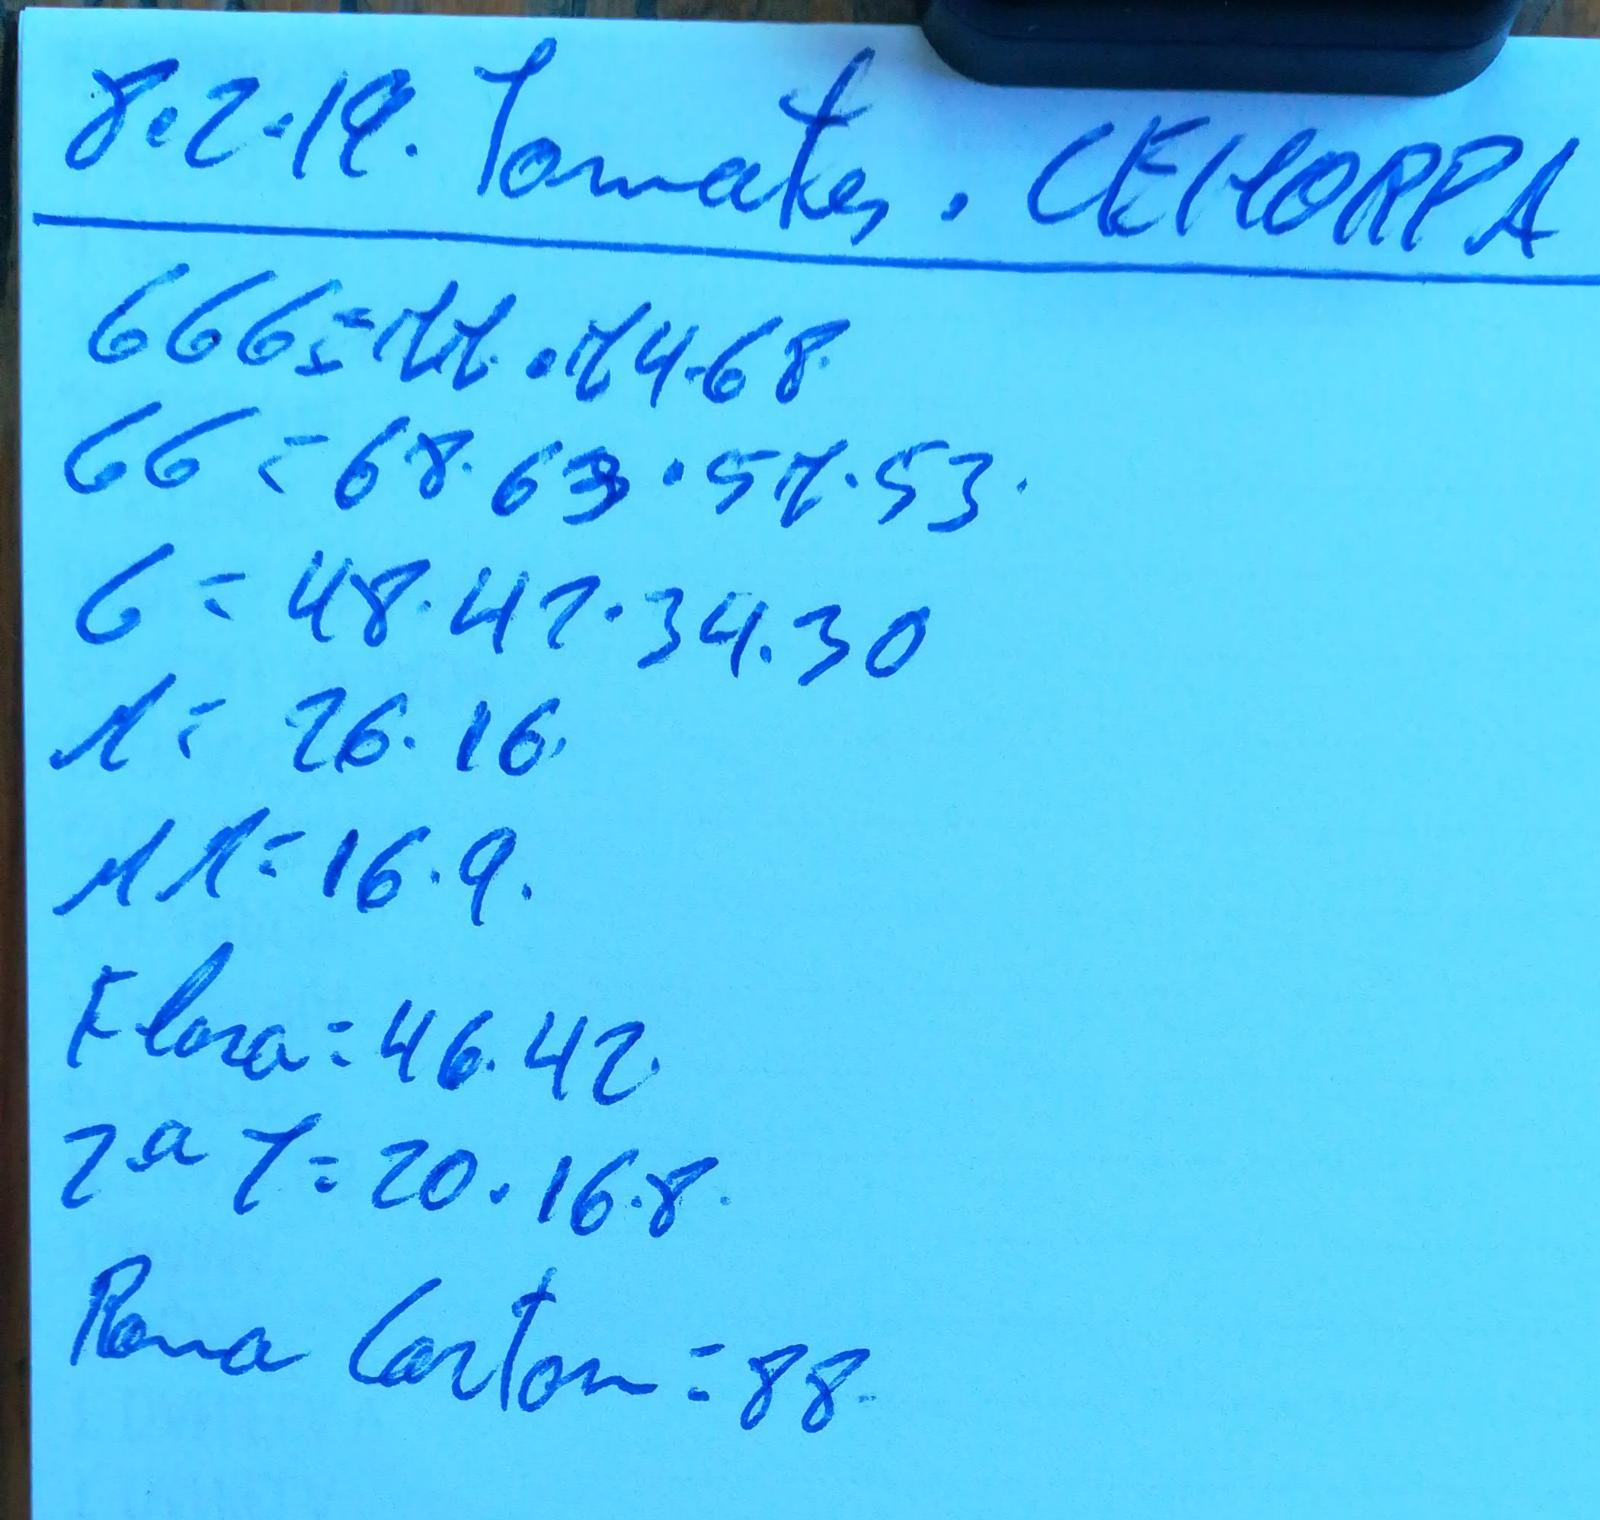 8.2.19. Tomates. CEHORPA
666 = 77.74.68.
66 = 68.63.57.53.
6 = 48.42.34.30
M = 26.16.
MM = 16.9.
Flora = 46.42.
2ª 7 = 20.16.8.
Rama Carton = 88.